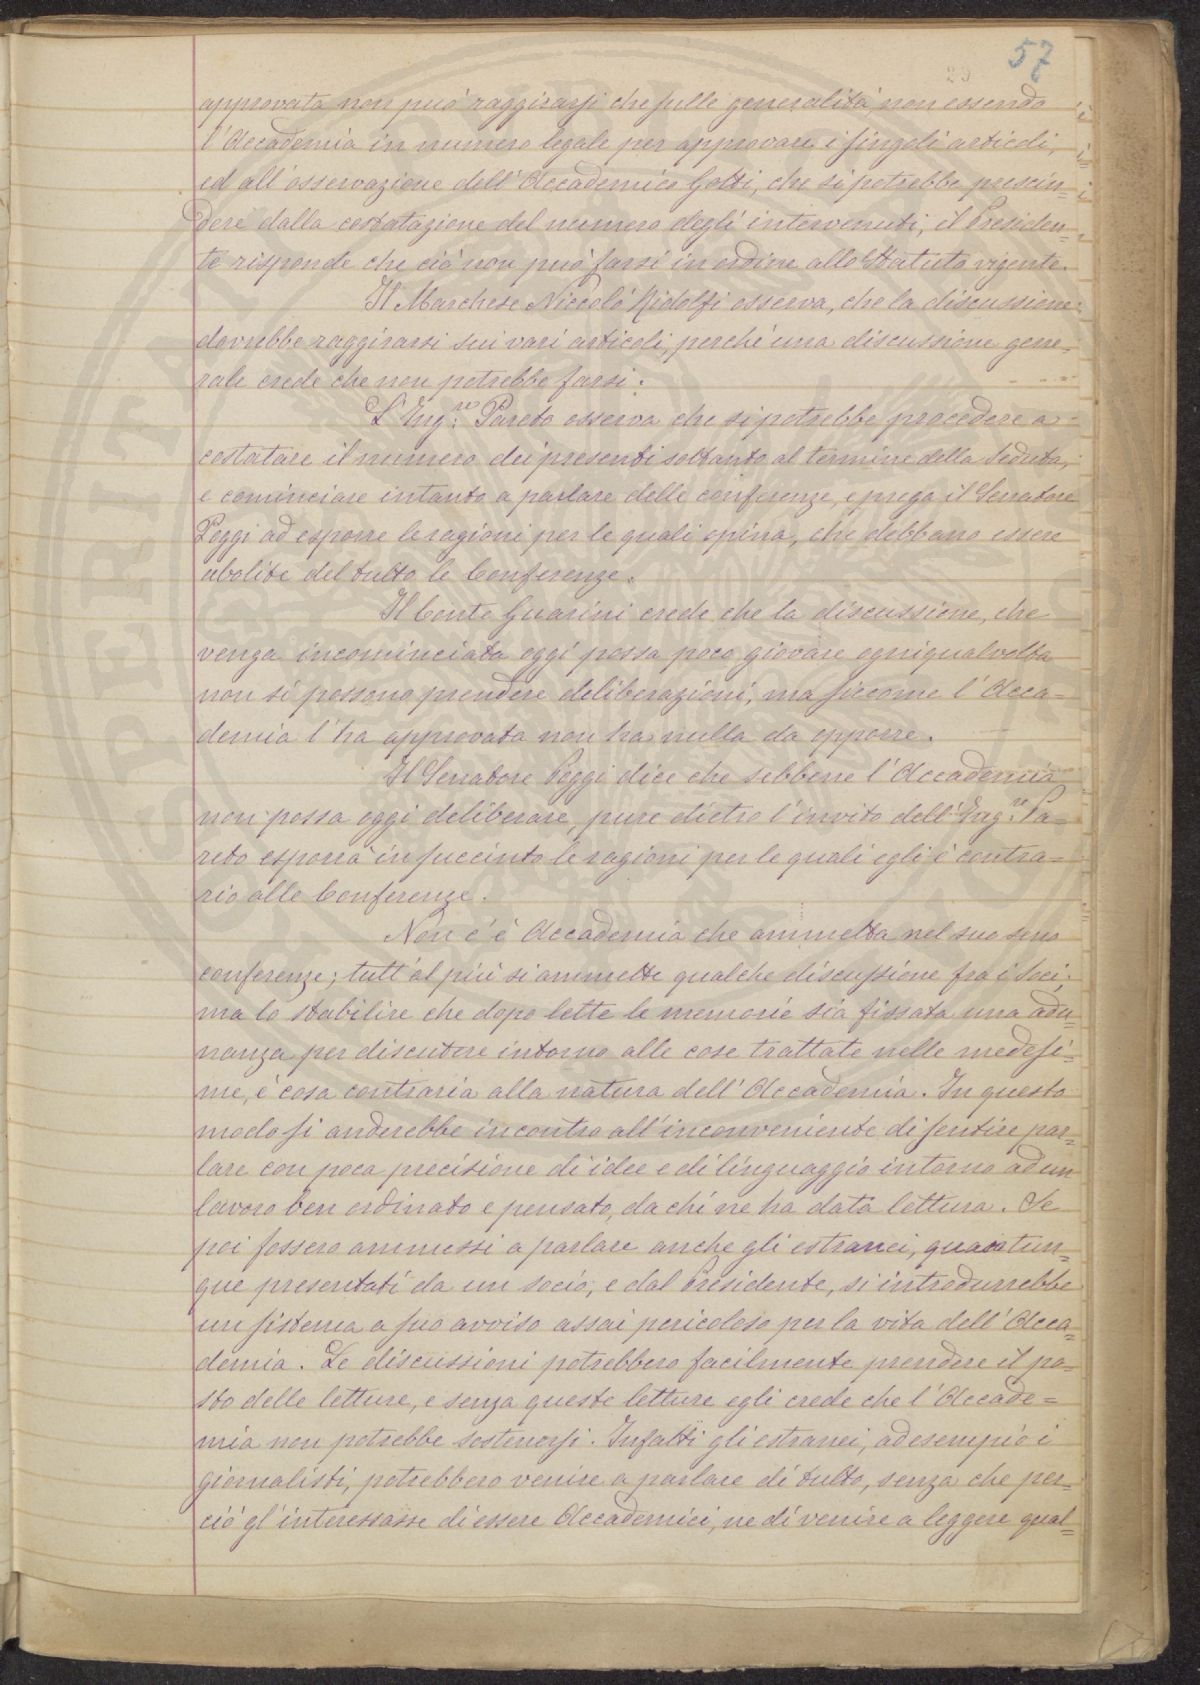 57
29
approvata non può raggirarsi che sulle generalità, non essendo
l'Accademia in numero legale per approvare i singoli articoli,
ed all'osservazione dell'Accademico Gotti, che si potrebbe prescin=
dere dalla costatazione del numero degli intervenuti, il Presiden=
te risponde che ciò non può farsi in ordine allo Statuto vigente.
Il Marchese Niccolò Ridolfi osserva, che la discussione
dovrebbe raggirarsi sui vari articoli, perchè una discussione gene=
rale crede che non potrebbe farsi.
L'Ing.re Pareto osserva che si potrebbe procedere a
costatare il numero dei presenti soltanto al termine della Seduta,
e cominciare intanto a parlare delle conferenze, e prega il Senatore
Peggi ad esporre le ragioni per le quali opina, che debbano essere
abolite del tutto le Conferenze.
Il Conte Guarini crede che la discussione, che
venga incominciata oggi possa poco giovare ogniqualvolta
non si possono prendere deliberazioni, ma siccome l'Acca=
demia l'ha approvata non ha nulla da opporre.
Il Senatore Peggi dice che sebbene l'Accademia
non possa oggi deliberare, pure dietro l'invito dell'Ing.re Pa=
reto esporrà in succinto le ragioni per le quali egli è contra=
rio alle Conferenze.
Non c'è Accademia che ammetta nel suo seno
conferenze; tutt'al più si ammette qualche discussione fra i Soci;
ma lo stabilire che dopo lette le memorie sia fissata una adu=
nanza per discutere intorno alle cose trattate nelle medesi=
me, è cosa contraria alla natura dell'Accademia. In questo
modo si anderebbe incontro all'inconveniente di sentire par=
lare con poca precisione di idee e di linguaggio intorno ad un
lavoro ben ordinato e pensato, da chi ne ha data lettura. Se
poi fossero ammessi a parlare anche gli estranei, quantun=
que presentati da un socio, e dal Presidente, si introdurrebbe
un sistema a suo avviso assai pericoloso per la vita dell'Acca=
demia. Le discussioni potrebbero facilmente prendere il po=
sto delle letture, e senza queste letture egli crede che l'Accade=
mia non potrebbe sostenersi. Infatti gli estranei, ad esempio i
giornalisti, potrebbero venire a parlare di tutto, senza che per=
ciò gl'interessasse di essere Accademici, ne di venire a leggere qual=